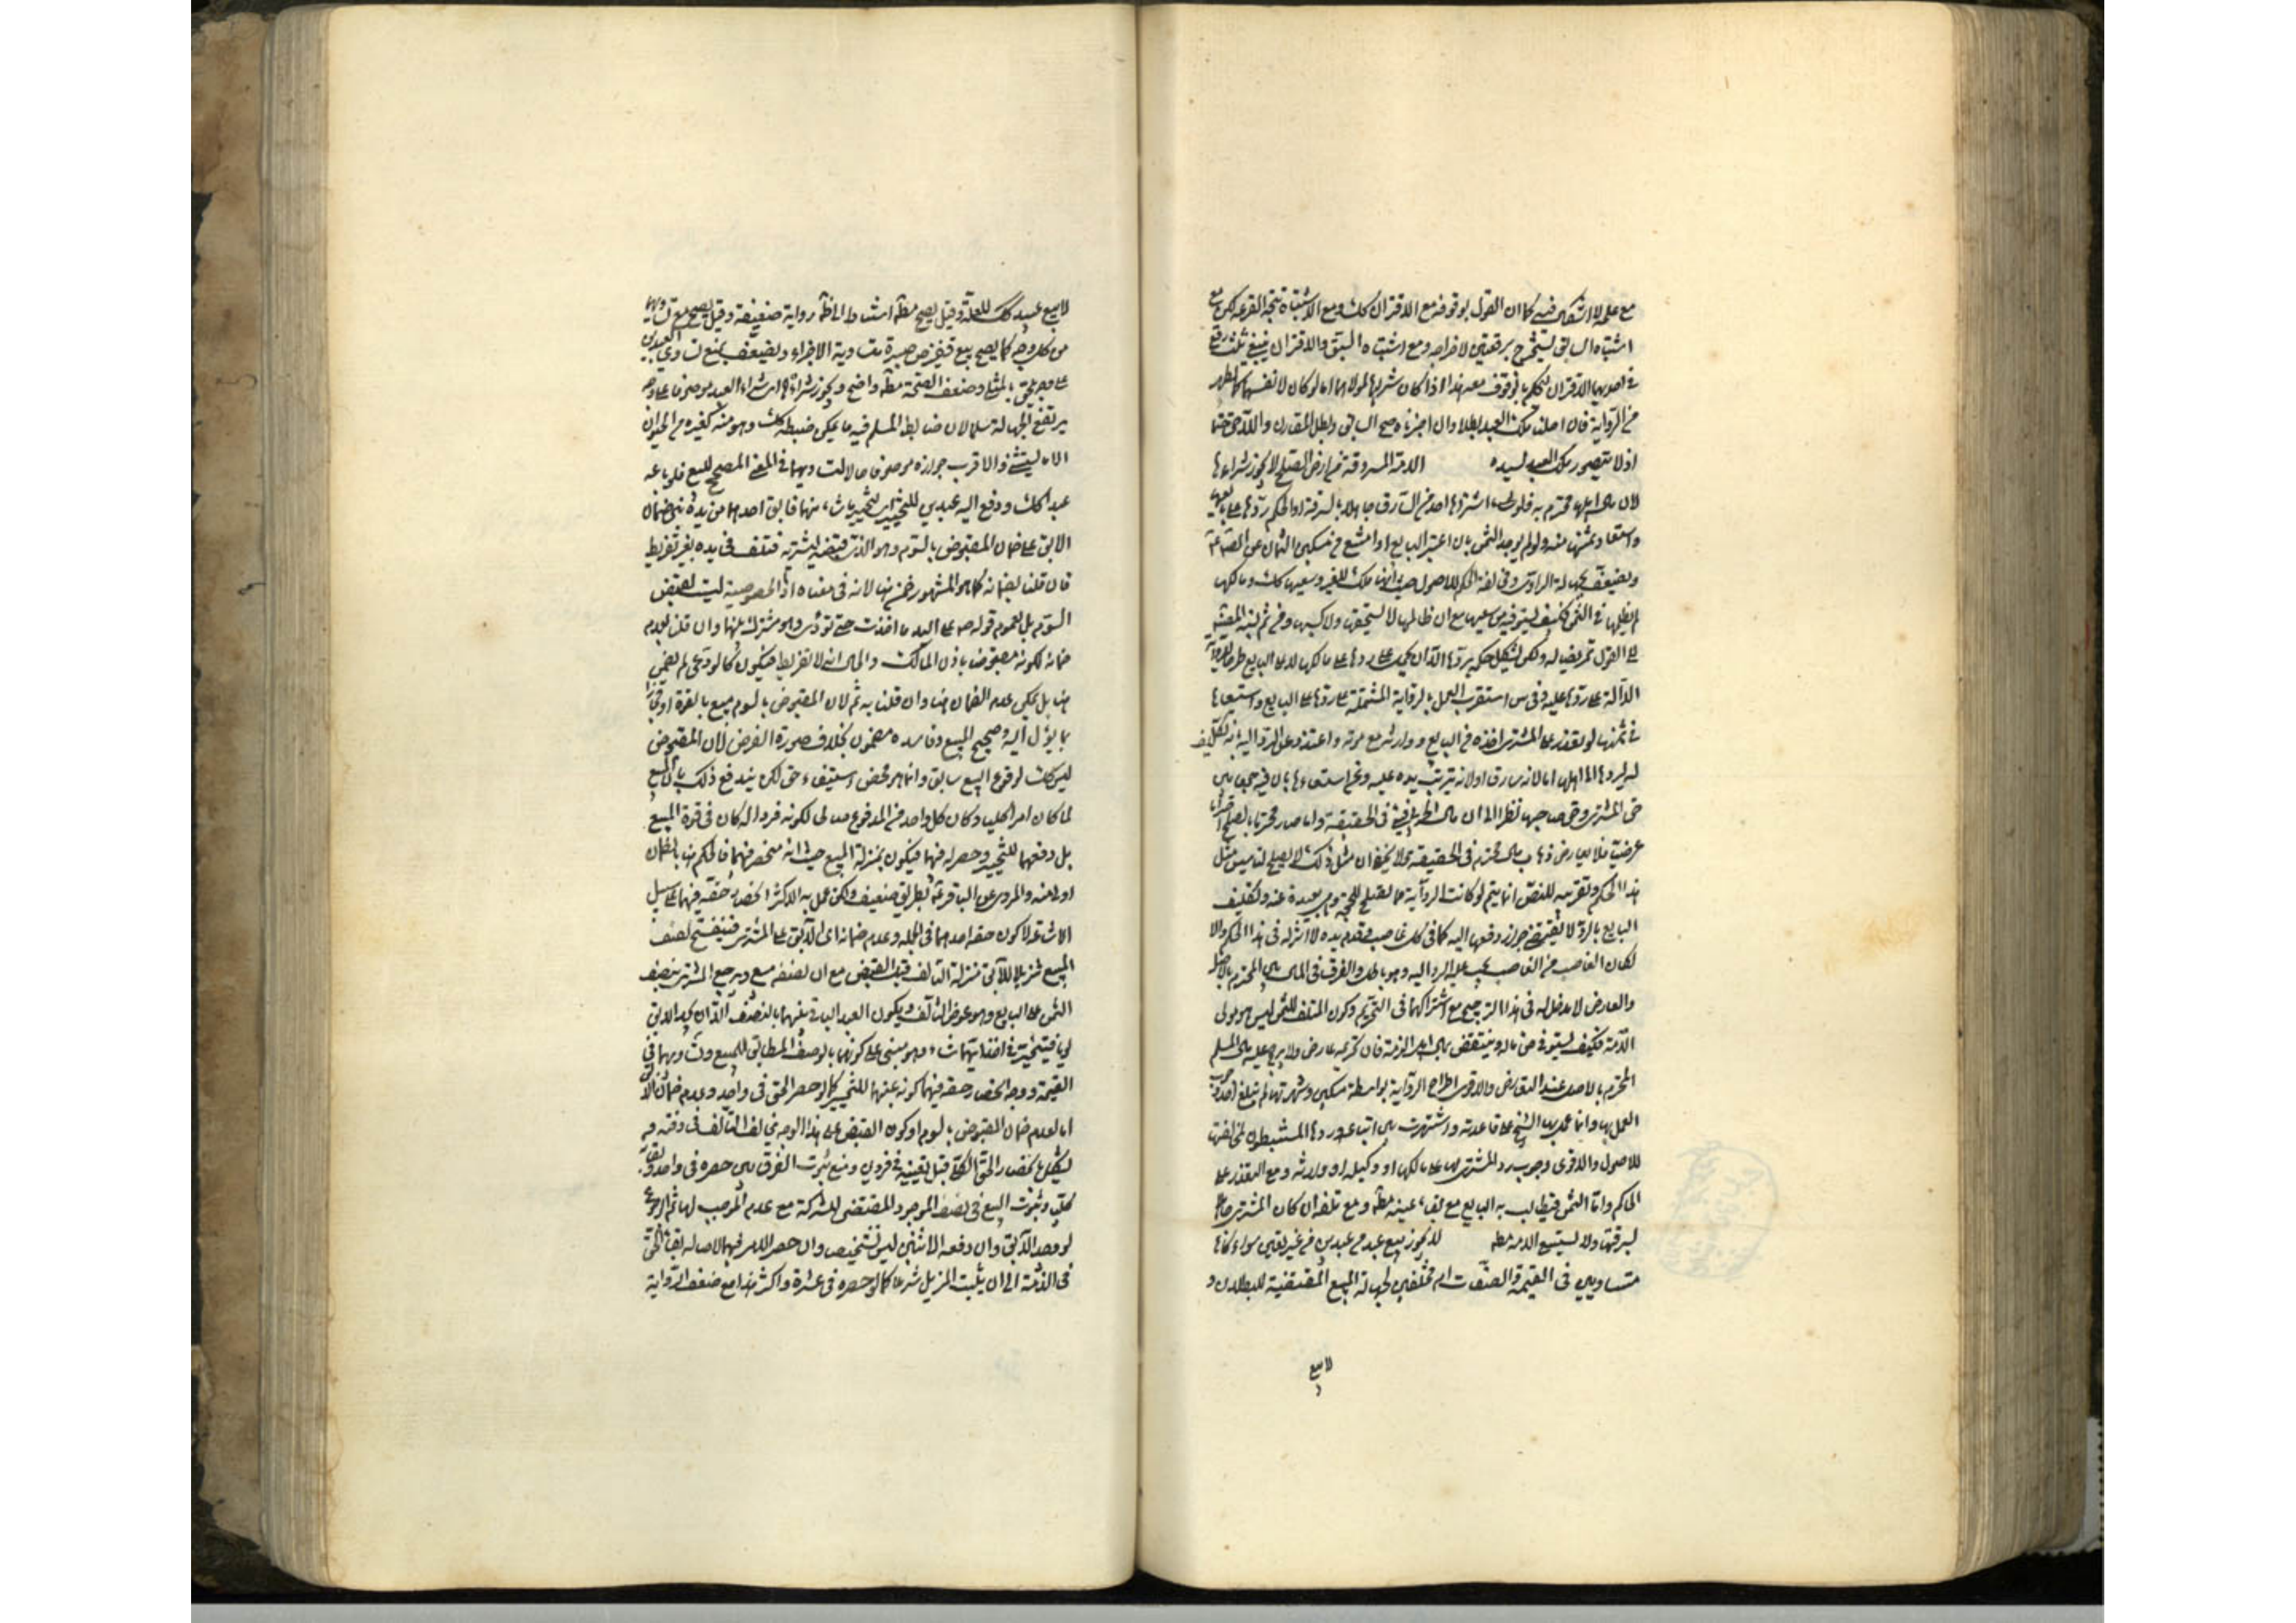 مع علمه لا اشكال فيه كما ان القول بوقوفه مع الاقتران كك ومع الاشتباه يتجه القرعة لكن مع
اشتباه السابق يستخرج برقعتين لاخراجه ومع اشتباه السبق والاقتران ينبغي ثلث رقع
في احديها الاقتران ليحكم بالوقوف معه هذا اذا كان شراؤهما لمولاهما اما لو كان لانفسهما كما يظهر
من الرواية فان احلنا ملك العبد بطلا وان اجزناه صح السابق وبطل المقارن واللاحق حتما
اذ لا يتصور ملك العبد لسيده الامة المسروقة من ارض الصلح لا يجوز شراءها
لان مال اهلها محترم به فلو اشتراها احد من السارق جاهلا بالسرقة او الحكم ردها على بايعها
واستعاد ثمنها منه ولو لم يوجد الثمن بان اعسر البايع او امتنع من مسكين السمان عن الصادق ع
ويضعف بجهالة الراوي ومخالفة الحكم للاصول حيث انها ملك للغير وسعيها كك ومالكها
لم يظلمه في الثمن فكيف يستوفيه من سعيها مع ان ظالمها لا يستحقها ولا كسبها ومن ثم نسبه المصنف
الى القول تمريضا له ولكن يشكل حكمه بردها الا ان يحمل على ردها على مالكها لا على البايع طرحا للرواية
الدالة على ردها عليه وفي س استقرب العمل بالرواية المشتملة على ردها على البايع واستسعائها
في ثمنها لو تعذر على المشتري اخذه من البايع ووارثه مع موته واعتذر عن الرد اليه بانه تكليف
له ليردها الى اهلها اما لانه سارق او لانه ترتب يده عليه وعن استسعائها بان فيه جمعا بين
حق المشتري وحق صاحبها نظرا الى ان مال الحربي فيئ في الحقيقة وانما صار محترما بالصلح احتراما
عرضيا فلا يعارض ذهاب مال محترم في الحقيقة ولا يخفى ان مثل ذلك لا يصلح لتاسيس مثل
هذا الحكم وتقريبه للنص انما يتم لو كانت الرواية مما تصلح للحجة وهي بعيدة عنه وتكليف
البايع بالرد لا يقتضي جواز دفعها اليه كما في كل غاصب وقدم يده لا اثر له في هذا الحكم والا
لكان الغاصب من الغاصب يجب عليه الرد اليه وهو باطل والفرق في المال بين المحترم بالاصل
والعارض لا مدخل له في هذا الترجيح مع اشتراكهما في التحريم وكون المتلف للثمن ليس هو مولى
الامة فكيف يستوفى من ماله وينتقض بمال اهل الذمة فان تحريمه عارض ولا يرجح عليه مال المسلم
المحترم بالاصل عند التعارض والاقوى اطراح الرواية بواسطة مسكين وشهرتها لم تبلغ حد وجوب
العمل بها وانما عمل بها الشيخ على قاعدته واشتهرت بين اتباعه وردها المستنبطون لمخالفتها
للاصول والاقوى وجوب رد المشتري لها على مالكها او وكيله او وارثه ومع التعذر على
الحاكم واما الثمن فيطالب به البايع مع بقاء عينه مطه ومع تلفه ان كان المشتري جاهلا
بسرقتها ولا تستسعى الامة مطه لا يجوز بيع عبد من عبدين من غير تعيين سواء كانا
متساويين في القيمة والصفات ام مختلفين لجهالة المبيع المقتضية للبطلان و
لا بيع
لا بيع عبيد كك للعلة وقيل يصح مطه استنادا الى ظاهر رواية ضعيفة وقيل يصح مع تساويهما
من كل وجه كما يصح بيع قفيز من صبرة متساوية الاجزاء ويضعف بمنع تساوي العبدين
على وجه يلحق بالمثلي وضعف الصحة مطه واضح ويجوز شراؤه اي شراء العبد موصوفا على وجه
يرتفع الجهالة سلما لان ضابط المسلم فيه ما يمكن ضبطه كك وهو منه كغيره من الحيوان
الا ما يستثنى والاقرب جوازه موصوفا حالا لتساويهما في المعنى المصحح للبيع فلو باعه
عبدا كك ودفع اليه عبدين للتخيير ليتخير ما شاء منهما فابق احدهما من يده بني ضمان
الابق على ضمان المقبوض بالسوم وهو الذي قبضه ليشتريه فتلف في يده بغير تفريط
فان قلنا بضمانه كما هو المشهور ضمن هنا لانه في معناه اذ الخصوصية ليست لقبض
السوم بل لعموم قوله ص على اليد ما اخذت حتى تؤدي وهو مشترك بينهما وان قلنا بعدم
ضمانه لكونه مقبوضا باذن المالك والحال انه لا تفريط فيكون كالودعي لم يضمن
هنا بل يمكن عدم الضمان هنا وان قلنا به ثم لان المقبوض بالسوم مبيع بالقوة او مجازا
بما يؤل اليه وصحيح المبيع وفاسده مضمون بخلاف صورة الفرض لان المقبوض
ليس كك لوقوع البيع سابقا وانما هو محض استيفاء حق لكن يندفع ذلك بان المبيع
لما كان امرا كليا وكان كل واحد من المدفوع صالحا لكونه فردا له كان في قوة المبيع
بل دفعهما للتخيير وحصره فيهما فيكون بمنزلة المبيع حيث انه منحصر فيهما فالحكم هنا بالضمان
اولى منه والمروي عن الباقر ع بطريق ضعيف ولكن عمل به الاكثر انحصار حقه فيهما على سبيل
الاشاعة لا كون حقه احدهما في الجملة وعدم ضمانه اى الابق على المشتري فينفسخ نصف
المبيع تنزيلا للابق منزلة التالف قبل القبض مع ان نصفه مبيع ويرجع المشتري بنصف
الثمن على البايع وهو عوض التالف ويكون العبد الباقي بينهما بالنصف الا ان يجد الابق
يوما فيتخير في اخذ ايهما شاء وهو مبني على كونهما بالوصف المطابق للمبيع وتساويهما في
القيمة ووجه انحصار حقه فيهما كونه عينهما للتخيير كما لو حصر الحق في واحد وعدم ضمان الابق
اما لعدم ضمان المقبوض بالسوم او كون القبض على هذا الوجه يخالف التالف في وقته
ليشكل بانحصار الحق الكلي قبل تعيينه في فردين ومنع ثبوت الفرق بين حصره في واحد وبقائه
كليا وثبوت البيع في نصف الموجود المقتضي للشركة مع عدم الموجب لها ثم الرجوع
لو وجد الابق وان دفعه الاثنين ليس تشخيصا وان حصر الامر فيهما لاصالة بقاء الحق
في الذمة الى ان يثبت المزيل شرعا كما لو حصره في عشرة واكثر هذا مع ضعف الرواية